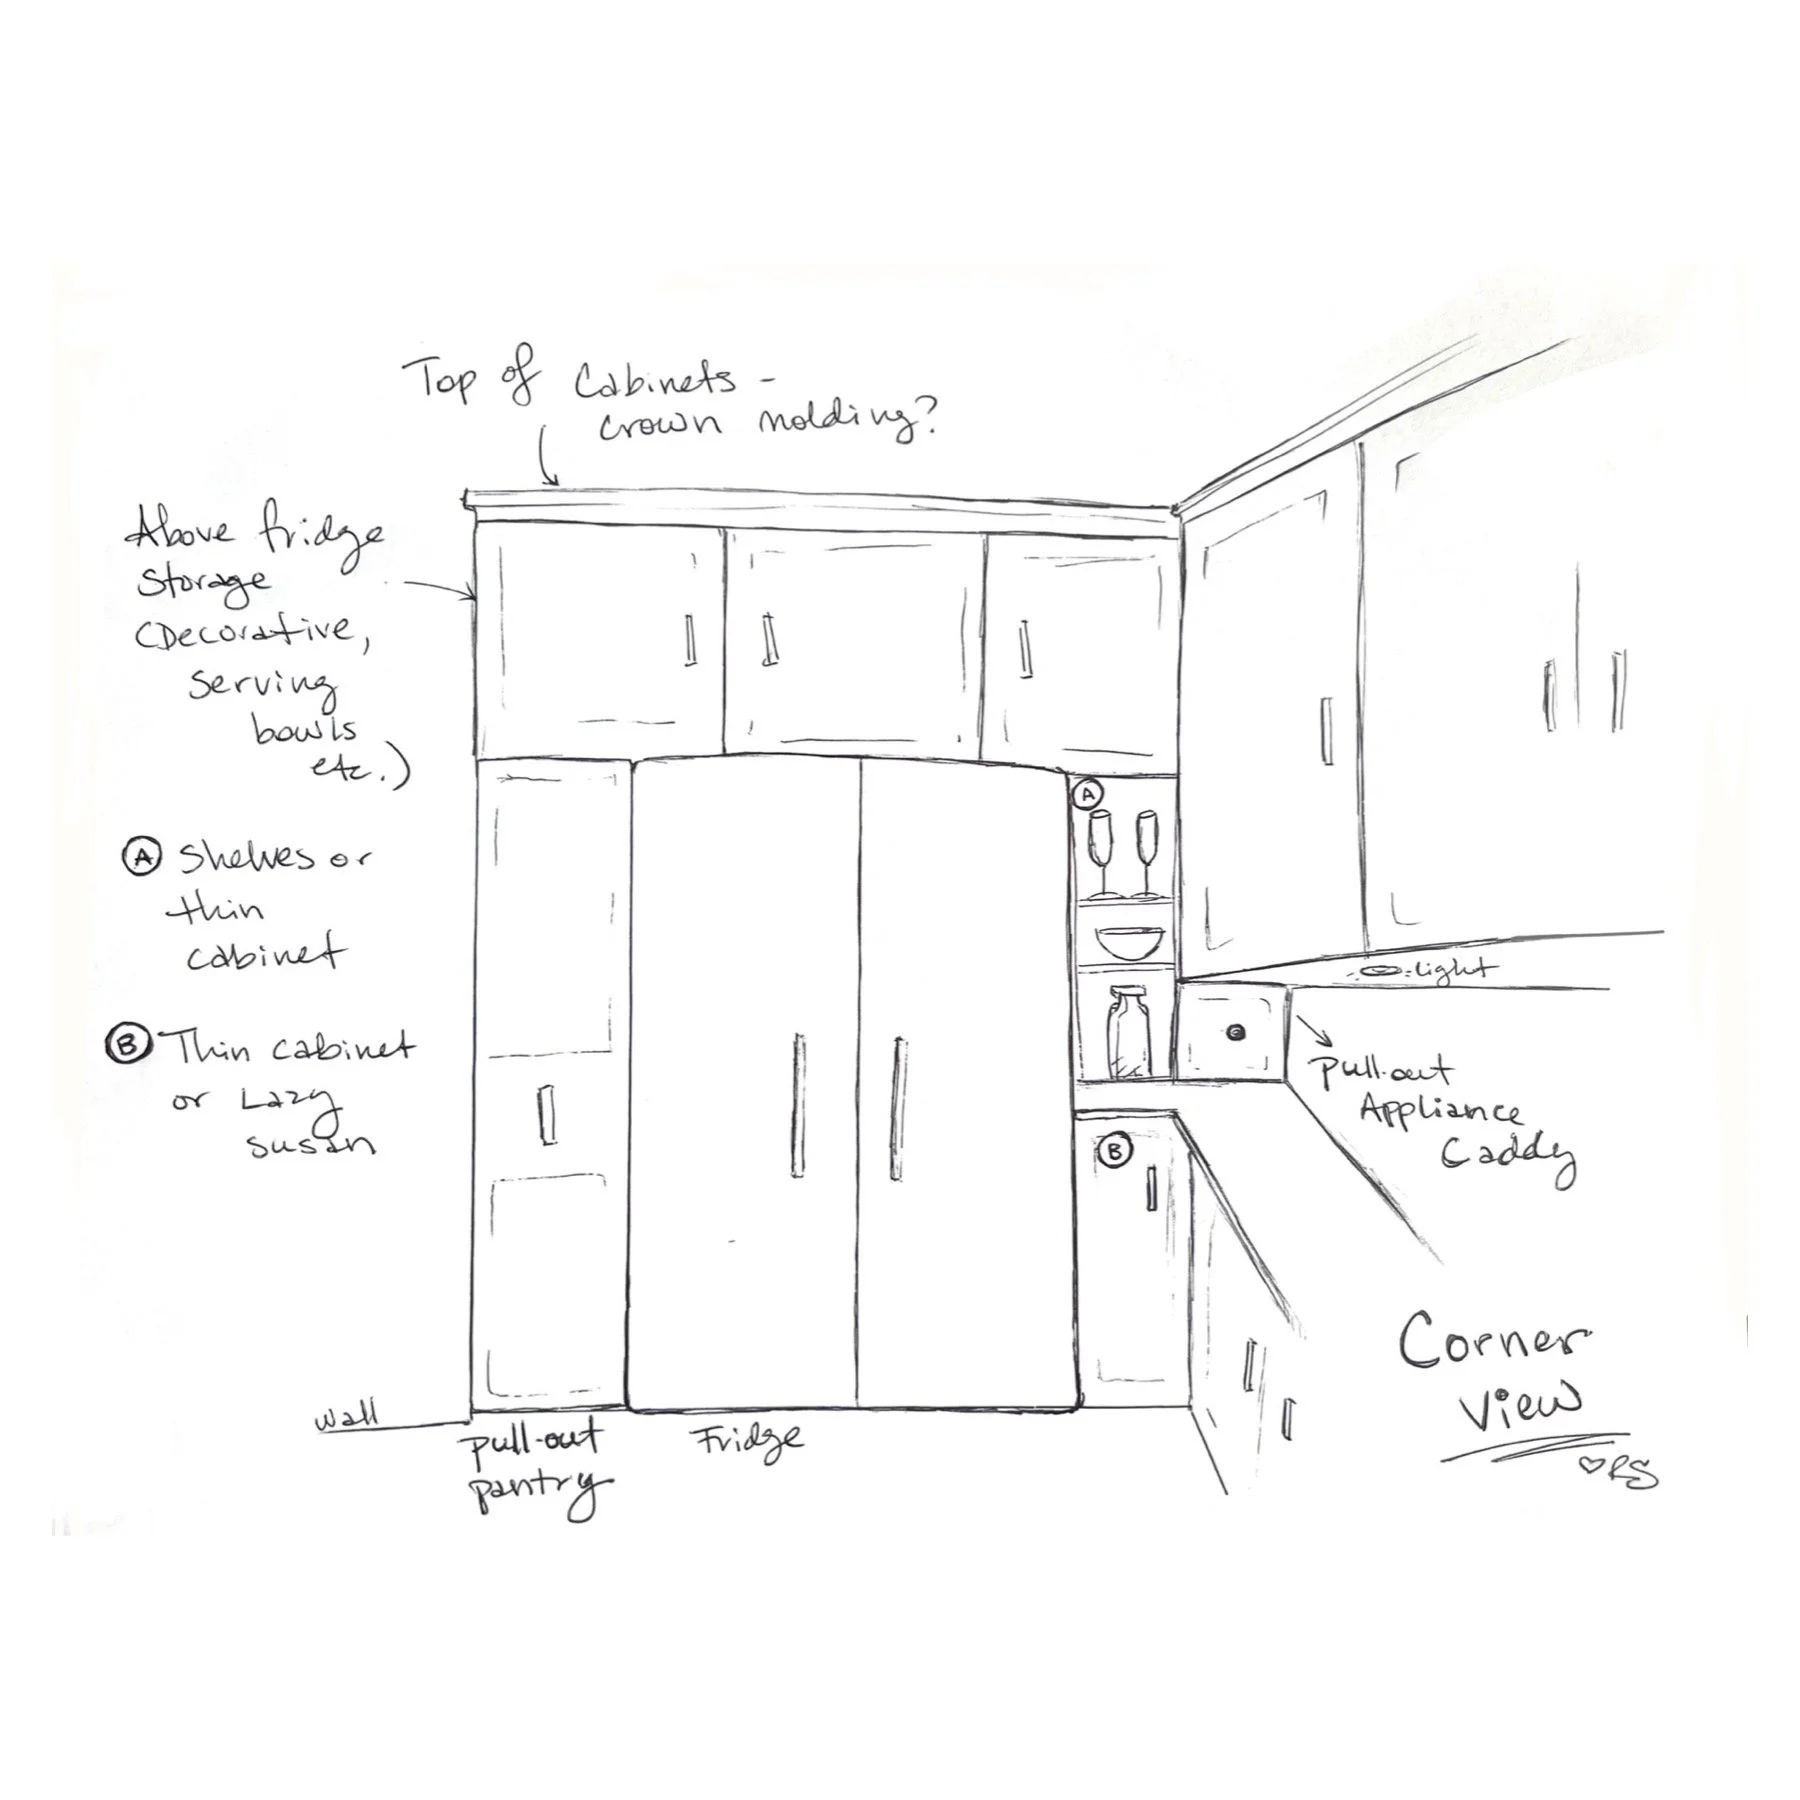 Top of Cabinets -
crown molding?
Above fridge
Storage
(Decorative,
serving
bowls
etc.)
A Shelves or
thin
cabinet
B Thin cabinet
or Lazy
susan
A
light
Pull-out
Appliance
Caddy
B
Corner
View
RS
wall
pull-out
pantry
Fridge